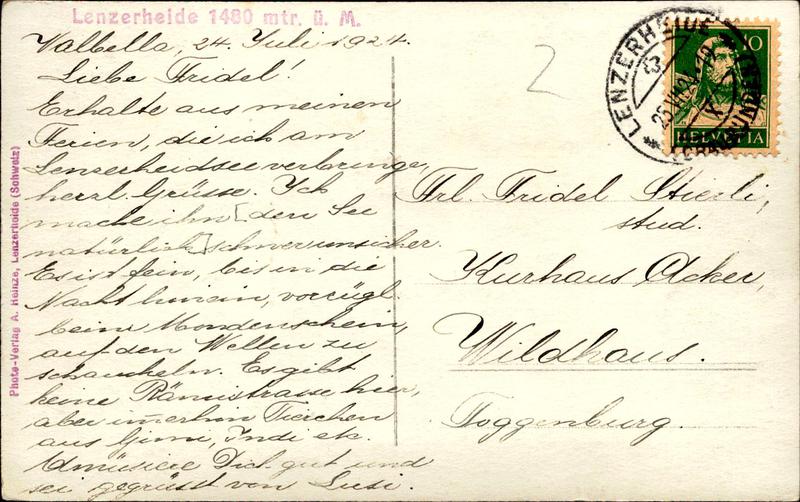 Lenzerheide 1480 mtr. ü. M.
Valbella, 24. Juli 1924.
Liebe Fridel!
Erhalte aus meinen
Ferien, die ich am
Lenzerheidsee verbringe,
herzl. Grüsse. Ich
mache ihn [den See
natürlich] schwer unsicher.
Es ist fein, bis in die
Nacht hinein, vorzügl.
beim Mondenschein,
auf den Wellen zu
schaukeln. Es gibt
keine Rämistrasse hier,
aber immerhin Tierchen
aus Gimi, Indi etc.
Amüsiere Dich gut und
sei gegrüsst von Lusi.
Photo-Verlag A. Heinze, Lenzerheide (Schweiz)
2
LENZERHEIDE
25.VII.24
10
HELVETIA
Frl. Fridel Stierli,
stud.
Kurhaus Acker,
Wildhaus.
Toggenburg.